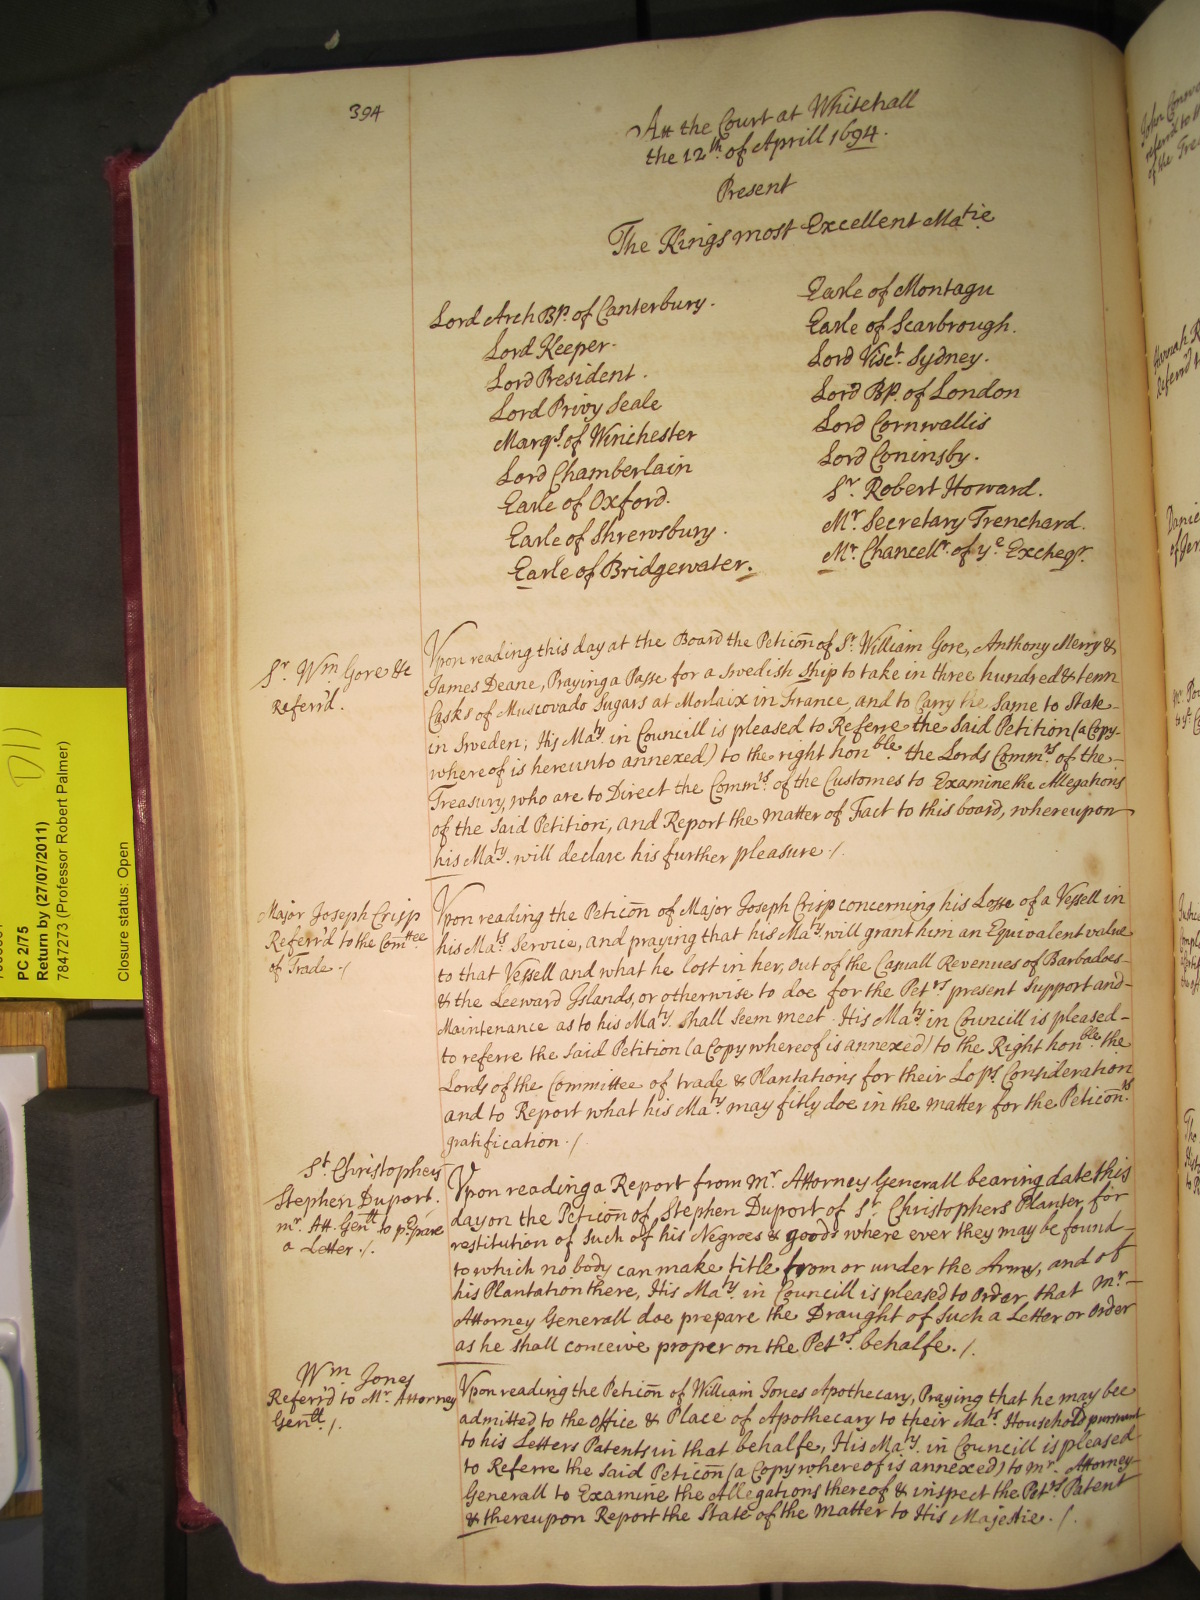 394
Att the Court at Whitehall
the 12th. of Aprill 1694.
Present
The Kings most Excellent Matie
Lord Arch BP. of Canterbury.
Lord Keeper.
Lord President.
Lord Privy Seale
Marqs. of Winchester
Lord Chamberlain
Earle of Oxford.
Earle of Shrewsbury.
Earle of Bridgewater.
Earle of Montagu
Earle of Scarbrough.
Lord Visct. Sydney.
Lord BP. of London
Lord Cornwallis
Lord Coninsby.
Sr. Robert Howard.
Mr. Secretary Trenchard.
Mr. Chancellr. of ye Excheqr.
Sr. Wm Gore &c
Referrd.
Vpon reading this day at the Board the Peticōn of Sr. William Gore, Anthony Merry &
James Deane, Praying a Passe for a Swedish Ship to take in three hundred & tenn
Casks of Muscovado Sugars at Morlaix in France, and to Carry the Same to State
in Sweden; His Maty. in Councill is pleased to Referre the Said Petition (a Copy
whereof is hereunto annexed) to the right honble. the Lords Commrs. of the
Treasury, who are to Direct the Commrs. of the Customes to Examine the Allegations
of the Said Petition, and Report the Matter of Fact to this board, whereupon
his Maty. will declare his further pleasure ./.
Major Joseph Crisp
Referr'd to the Comttee
of Trade ./
Vpon reading the Peticōn of Major Joseph Crisp concerning his Losse of a Vessell in
his Mats. Service, and praying that his Maty. will grant him an Equivalent value
to that Vessell and what he lost in her, out of the Casuall Revenues of Barbadoes
& the Leeward Islands, or otherwise to doe for the Petrs. present Support and
Maintenance as to his Maty. Shall Seem meet. His Maty. in Councill is pleased
to referre the Said Petition (a Copy whereof is annexed) to the Right honble. the
Lords of the Committee of trade & Plantations for their Lops. Consideration
and to Report what his Maty. may fitly doe in the matter for the Peticōnrs.
gratification ./
St. Christophers
Stephen Duport.
mr. Att. Genll to p̱pare
a Letter ./.
Vpon reading a Report from Mr. Attorney Generall bearing date this
day on the Peticōn of Stephen Duport of St. Christophers Planter for
restitution of Such of his Negroes & goods where ever they may be found
to which no body can make title from or under the Army, and of
his Plantation there, His Maty. in Councill is pleased to order, that Mr.
Attorney Generall doe prepare the Draught of Such a Letter or Order
as he Shall conceive proper on the Petrs. behalfe ./.
Wm Jones
Referr'd to Mr. Attorney
Genll. /.
Vpon reading the Peticōn of William Jones Apothecary, Praying that he may bee
admitted to the Office & Place of Apothecary to their Mats. Household pursuant
to his Letters Patents in that behalfe, His Maty. in Councill is pleased
to Referre the Said Peticōn (a Copy whereof is annexed) to Mr. Attorney
Generall to Examine the Allegations thereof & inspect the Petrs. Patent
& thereupon Report the State of the Matter to His Majestie ./.
PC 2/75
Return by (27/07/2011)
78447273 (Professor Robert Palmer)
Closure status: Open
D11